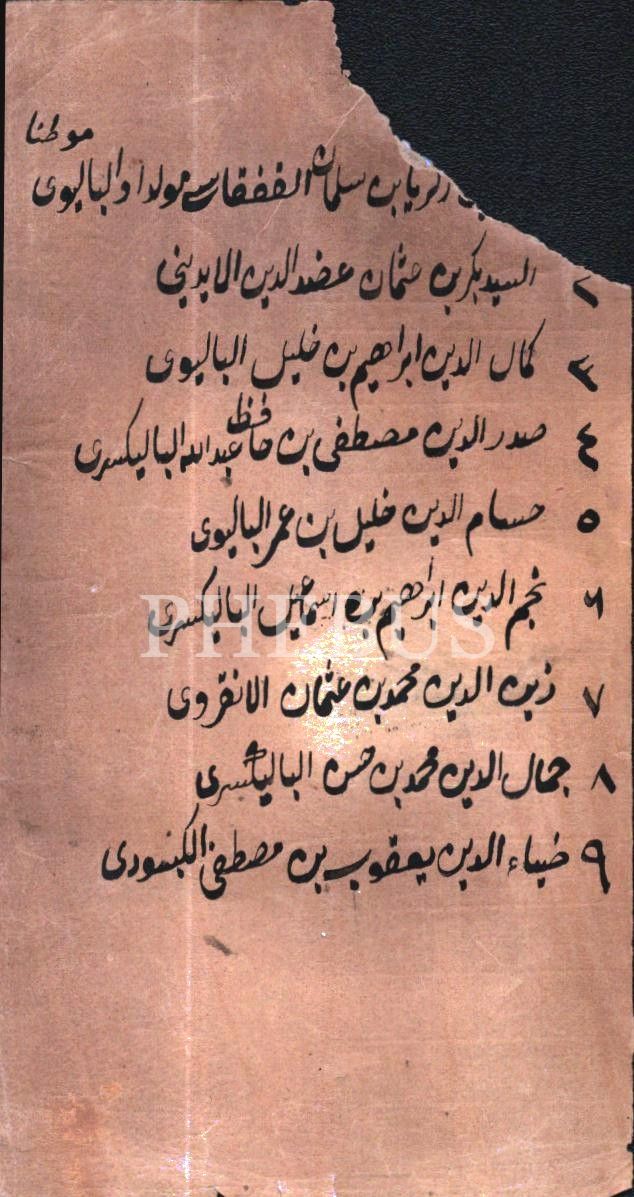 موطنا
زكريا بن سلمان القفقاسى مولدا والباليوى
٢ السيد بكر بن عثمان عضد الدين الايدينى
٣ كمال الدين ابراهيم بن خليل الباليوى
٤ صدر الدين مصطفى بن حافظ عبدالله الباليكسرى
٥ حسام الدين خليل بن عمر الباليوى
٦ نجم الدين ابراهيم بن اسماعيل الباليكسرى
PHEBUS
٧ زين الدين محمد بن عثمان الانقروى
٨ جمال الدين محمد بن حسن الباليكسرى
٩ ضياء الدين يعقوب بن مصطفى